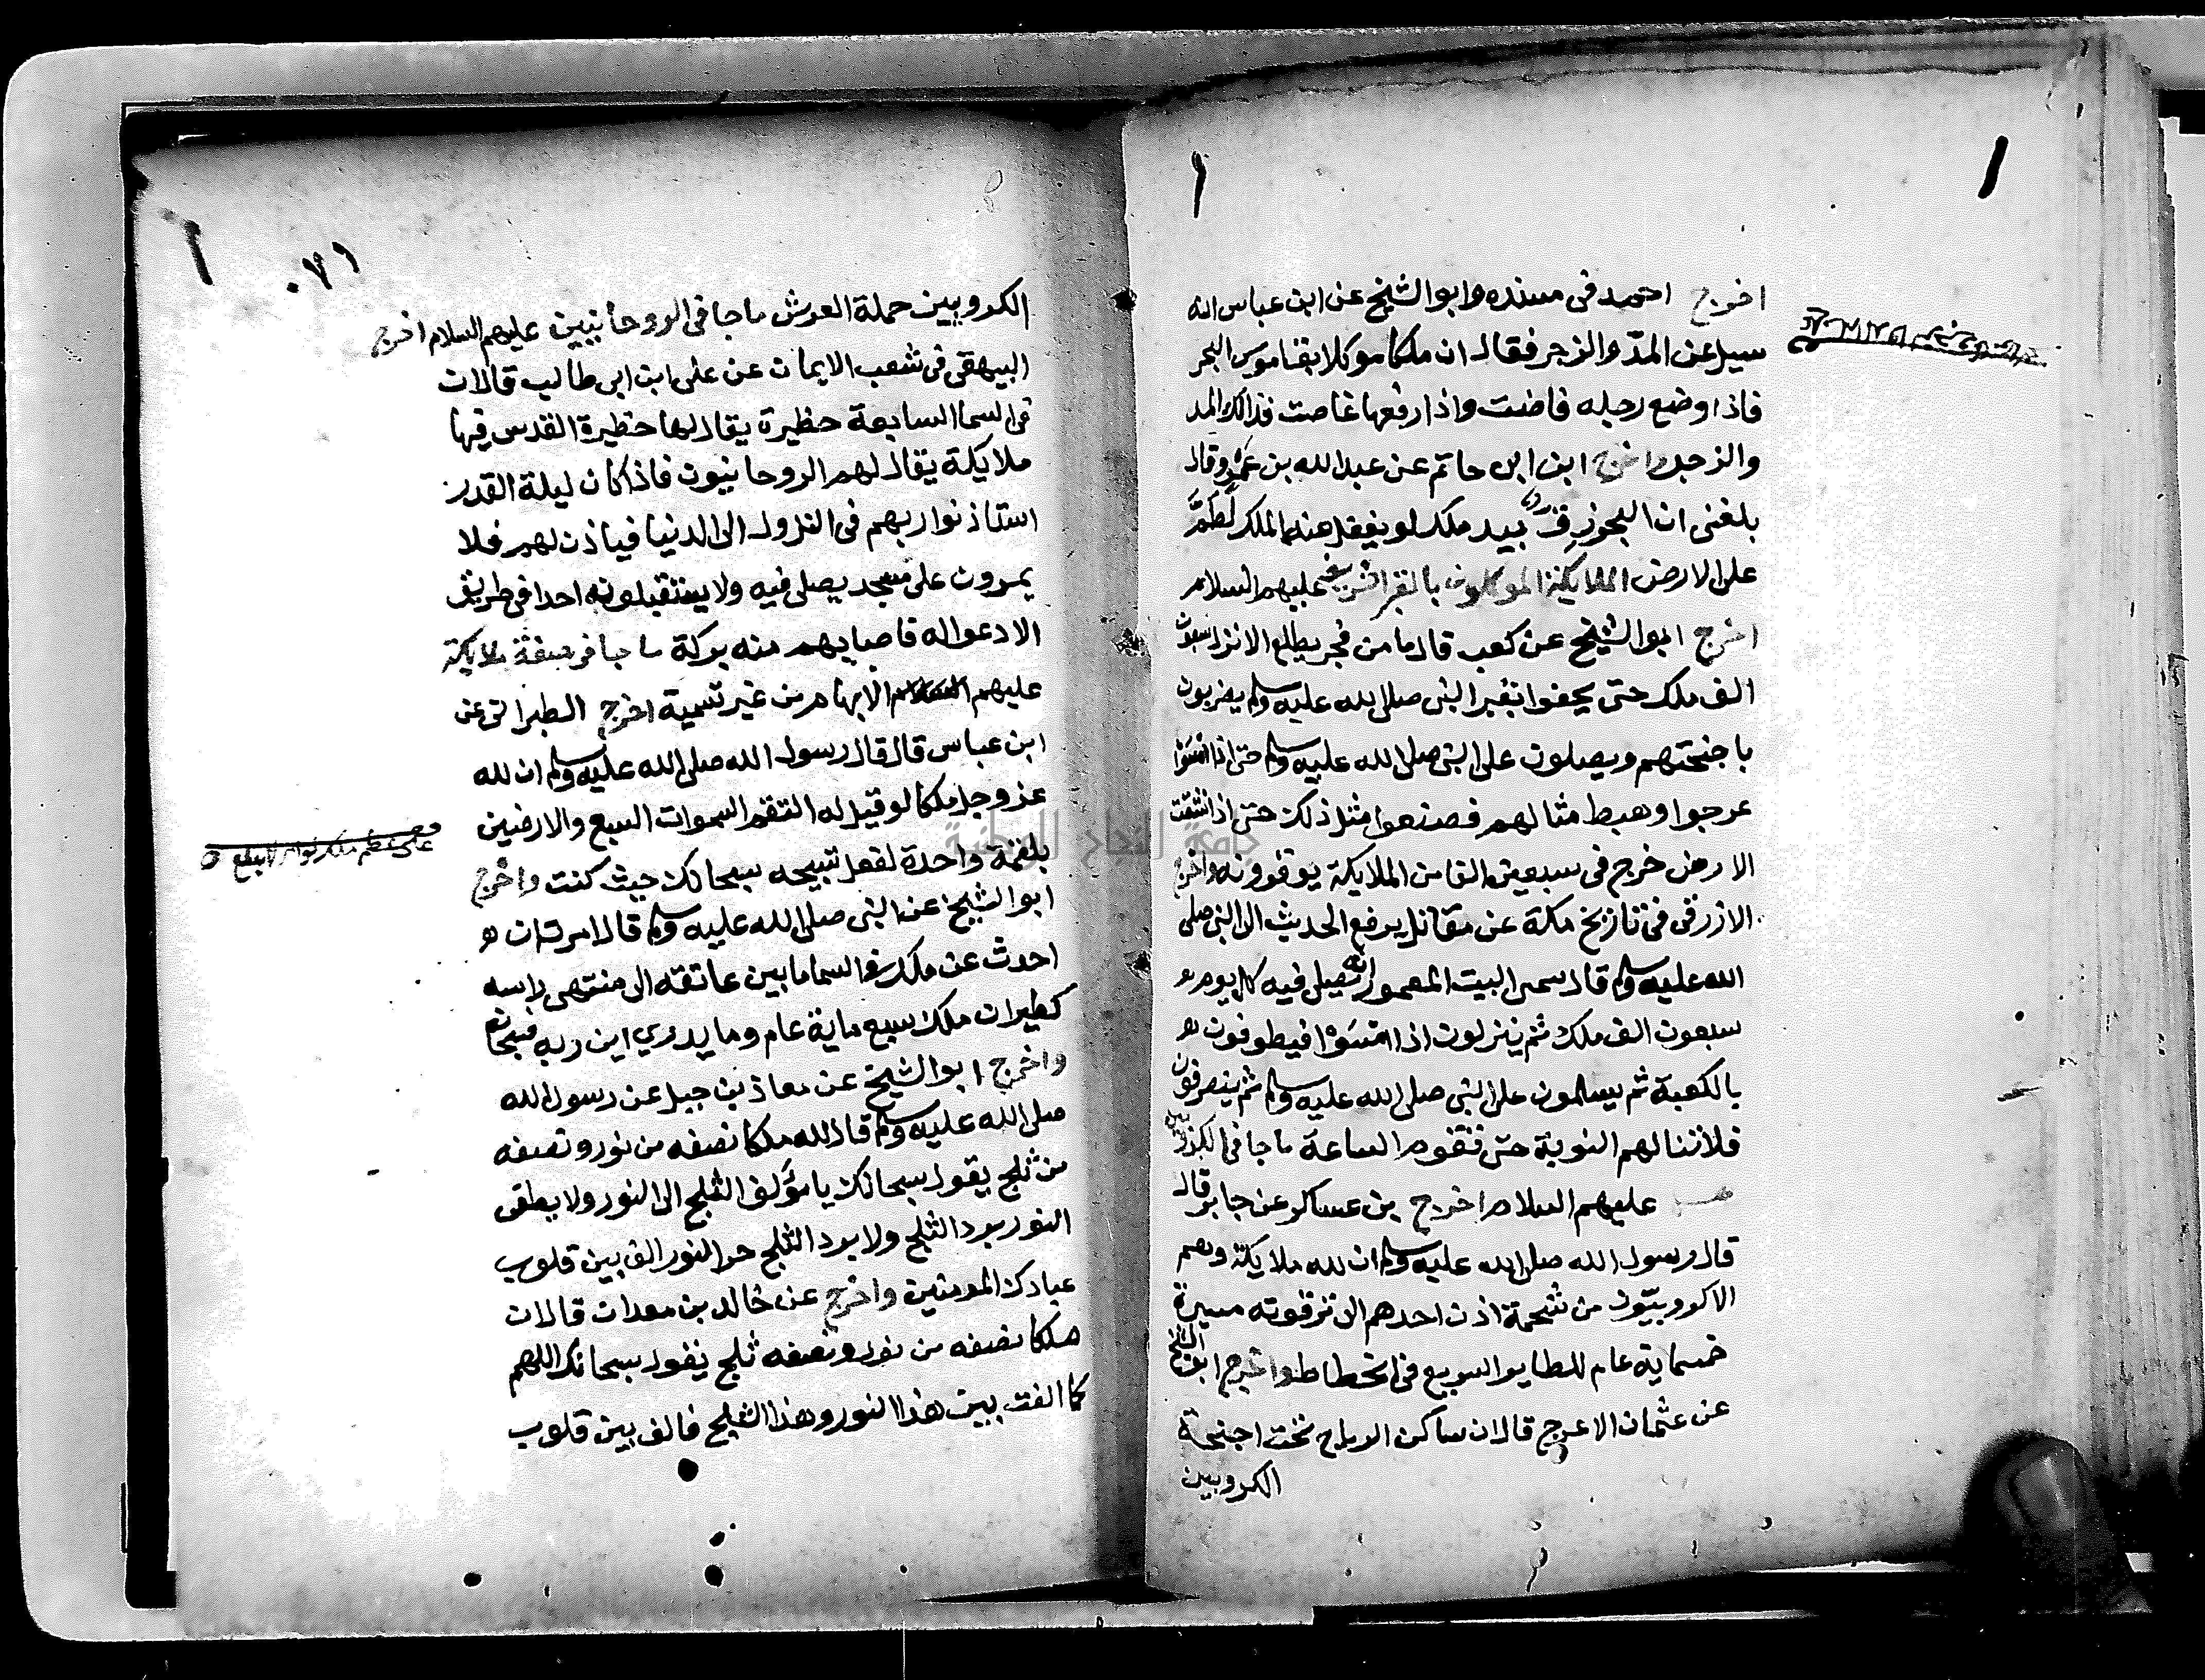 اخرج احمد في مسنده وابو الشيخ عن ابن عباس انه
سيل عن المد والزجر فقال ان ملكا موكلا بقاموس البحر
فاذا وضع رجله فاضت واذا رفعها غاصت فذالك المد
والزجر واخرج ابن ابي حاتم عن عبدالله بن عمرو قال
بلغني ان البحر زق بيد ملك لو يغفل عنه الملك لطم
على الارض الملايكة الموكلون بالقبر الشريف عليهم السلام
اخرج ابو الشيخ عن كعب قال ما من فجر يطلع الا نزل سبعون
الف ملك حتى يحفوا بقبر النبي صلى الله عليه وسلم يضربون
باجنحتهم ويصلون على النبي صلى الله عليه وسلم حتى اذا امسوا
عرجوا وهبط مثالهم فصنعوا مثل ذلك حتى اذا انشقت
الارض خرج في سبعين الفا من الملايكة يوقرونه واخرج
الازرقي في تاريخ مكة عن مقاتل يرفع الحديث الى النبي صلى
الله عليه وسلم قال سمي البيت المعمور لانه يصلي فيه كل يوم
سبعون الف ملك ثم ينزلون اذا امسوا فيطوفون
بالكعبة ثم يسلمون على النبي صلى الله عليه وسلم ثم ينصرفون
فلا تنالهم النوبة حتى تقوم الساعة ما جا في الكروبيين
عليهم السلام اخرج بن عساكر عن جابر قال
قال رسول الله صلى الله عليه وسلم ان لله ملايكة وهم
الاكروبيون من شحمة اذن احدهم الى ترقوته مسيرة
خمسماية عام للطاير السريع في انحطاط واخرج ابو الشيخ
عن عثمان الاعرج قال ان مساكن الرياح تحت اجنحة
الكروبين
٠٧١
الكروبين حملة العرش ما جا في الروحانيين عليهم السلام اخرج
البيهقي في شعب الايمان عن علي ابن ابي طالب قال ان
في السما السابعة حظيرة يقال لها حظيرة القدس فيها
ملايكة يقال لهم الروحانيون فاذا كان ليلة القدر
استاذنوا ربهم في النزول الى الدنيا فياذن لهم فلا
يمرون على مسجد يصلى فيه ولا يستقبلون احدا في طريق
الا دعوا له فاصابهم منه بركة ما جا في صفة ملايكة
عليهم الابهام من غير تسمية اخرج الطبراني عن
ابن عباس قال قال رسول الله صلى الله عليه وسلم ان لله
عز وجل ملكا لو قيل له التقم السموات السبع والارضين
بلقمة واحدة لفعل تسبيحه سبحانك حيث كنت واخرج
على عظم ملك
ابو الشيخ عن النبي صلى الله عليه وسلم قال امرت ان
احدث عن ملك في السما ما بين عاتقه الى منتهى راسه
كطيران ملك سبع ماية عام وما يدري اين ربه فسبحانه
واخرج ابو الشيخ عن معاذ بن جبل عن رسول الله
صلى الله عليه وسلم قال لله ملكا نصفه من نور ونصفه
من ثلج يقول سبحانك يا مؤلف الثلج الى النور ولا يطفى
النور برد الثلج ولا برد الثلج حر النور الف بين قلوب
عبادك المومنين واخرج عن خالد بن معدان قال ان
ملكا نصفه من نور ونصفه ثلج يقول سبحانك اللهم
كما الفت بين هذا النور وهذا الثلج فالف بين قلوب
جامعة النجاح الوطنية